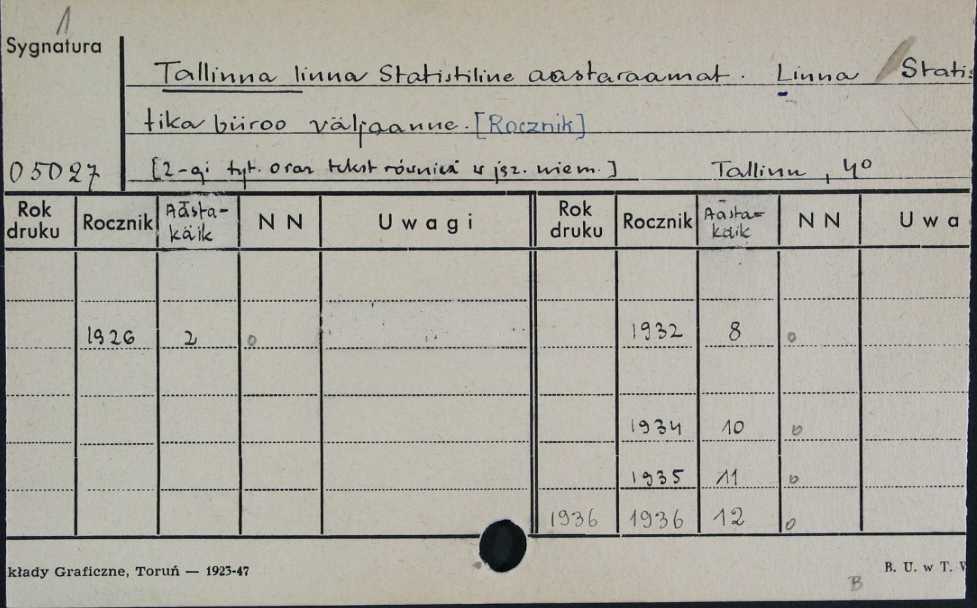 1
Sygnatura
Tallinna linna Statistiline aastaraamat. Linna / Statis
tika büroo väljaanne. [Rocznik]
05027 [2-gi tyt. oraz tekst również w jęz. niem.] Tallinn, 4º
Rok druku Rocznik Aasta-käik N N Uwagi Rok druku Rocznik Aasta=käik N N Uwa
1926 2 o 1932 8 o
1934 10 o
1935 11 o
1936 1936 12 o
kłady Graficzne, Toruń — 1923-47 B. U. w T. W
B